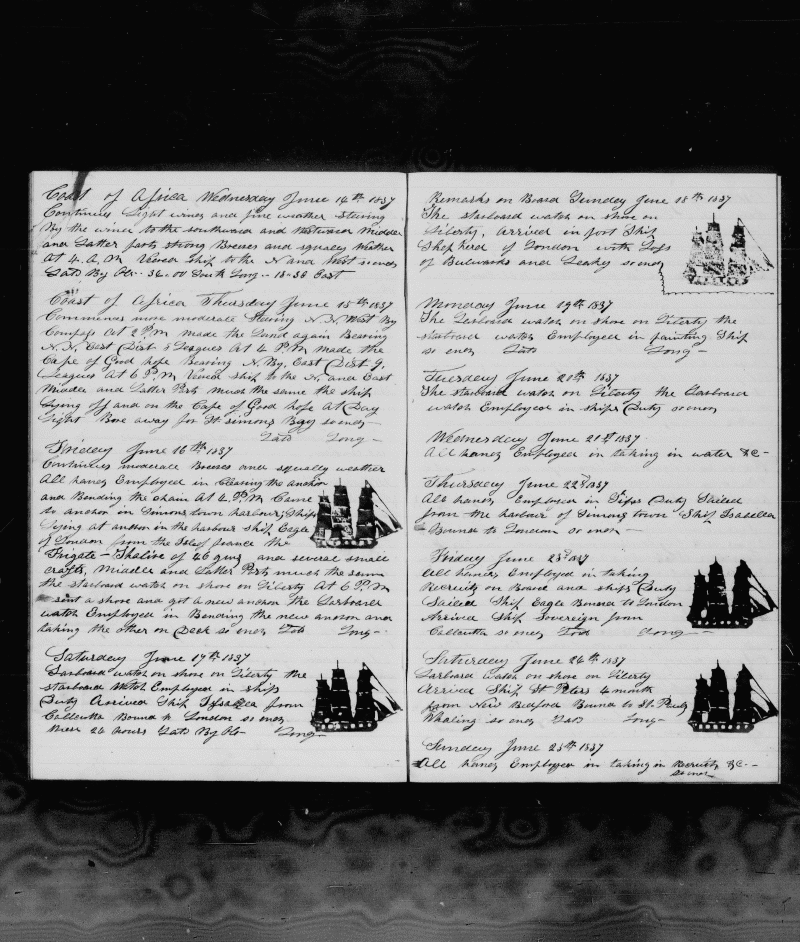 Coast of Africa Wednesday June 14th 1837
Continues Light winds and fine weather Stearing
By the wind to the southward and Westward Middle
and Latter parts strong Breeses and squaly Wether
At 4. A, M Veared Ship to the N and West so ends
Latd By Ob- 36=00 South Long- 18=36 East
Coast of Africa Thursday June 15th 1837
Commences more moderate Stearing N. N. West By
Compass At 2 P. M made the Land again Bearing
N. N. East Dist. 8 Leagues At 4 P. M made the
Cape of Good hope Bearing N. By, East Dist 9,
Leagues At 6 P. M Veared ship to the N, and East
Middle and Latter Parts much the same the ship
Lying off and on the Cape of Good hope At Day
Light Bore away for St simons Bay so ends-
Latd Long-
Friday June 16th 1837
Continues moderate Breeses and squally weather
All hands Employed in Clearing the anchor
and Bending the Chain At 4. P. M Came
to anchor in Simons town harbour; Ships
Lying at anchor in the harbour Ship Eagle
of London from the Isle of france the
Frigate- of 46 guns and several small
crafts, Middle and Latter Parts much the same
the starboard watch on shore on Liberty At 6 P. M
sent a shore and got a new anchor the Larboard
watch Employed in Bending the new anchor and
taking the other on Deck so ends Latd Long-
Saturday June 17th 1837
Larboard watch on shore on Liberty the
starboard Watch Employed in ship
Duty Arrived Ship Issabella from
Callcutta Bound to London so ends
these 24 hours Latd By Ob- Long-
Remarks on Board Sunday June 18th 1837
The starboard watch on shore on
Liberty, Arrived in port Ship
Shepherd of London with Loss
of Bulwarks and Leaky so ends
Monday June 19th 1837
The Larboard watch on shore on Liberty the
starboard watch Employed in painting Ship
so ends Latd Long-
Tuesday June 20th 1837
The starboard watch on Liberty the Larboard
watch Employed in ships Duty so ends
Wednesday June 21st 1837-
All hands Employed in taking in water &C-
Thursday June 22nd 1837
All hands Employed in Ships Duty Sailed
from the harbour of Simons town Ship Isabella
Bound to London so ends-
Friday June 23rd 1837
All hands Employed in taking
Recruits on Board and ships Duty
Sailed Ship Eagle Bound to London
Arrived Ship Sovereign from
Callcutta so ends Latd Long-
Saturday June 24th 1837
Larboard Watch on shore on Liberty
Arrived Ship St Peters 4 month
from New Bedford Bound to St. Pauls
Whaling so ends Latd Long-
Sunday June 25th 1837
All hands Employed in taking in Recruits &C-
so ends